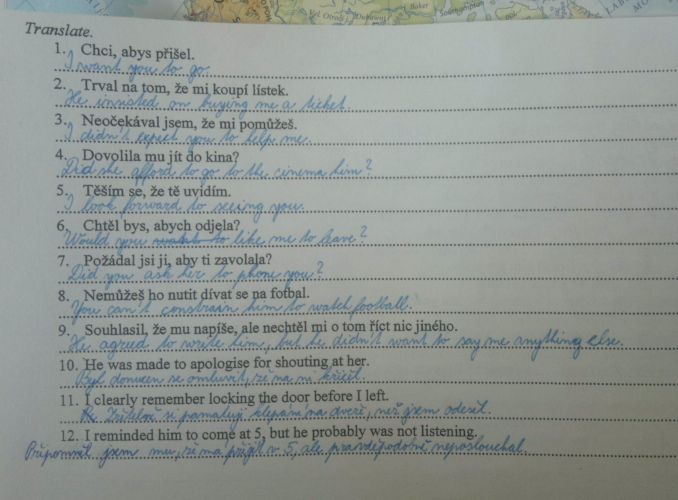 Vel. Otroči
Dubrovnik
Baker
Southampton
Translate.
1. Chci, abys přišel.
I want you to go.
2. Trval na tom, že mi koupí lístek.
He insisted on buying me a ticket.
3. Neočekával jsem, že mi pomůžeš.
I didn't expect you to help me.
4. Dovolila mu jít do kina?
Did she afford to go to the cinema him?
5. Těším se, že tě uvidím.
I look forward to seeing you.
6. Chtěl bys, abych odjela?
Would you to like me to leave?
7. Požádal jsi ji, aby ti zavolala?
Did you ask her to phone you?
8. Nemůžeš ho nutit dívat se na fotbal.
You can't constrain him to watch football.
9. Souhlasil, že mu napíše, ale nechtěl mi o tom říct nic jiného.
He agreed to write him, but he didn't want to say me anything else.
10. He was made to apologise for shouting at her.
Byl donucen se omluvit, že na ni křičel.
11. I clearly remember locking the door before I left.
Zřetelně si pamatuji klepání na dveře, než jsem odešel.
12. I reminded him to come at 5, but he probably was not listening.
Připomněl jsem mu, že má přijít v 5, ale pravděpodobně neposlouchal.